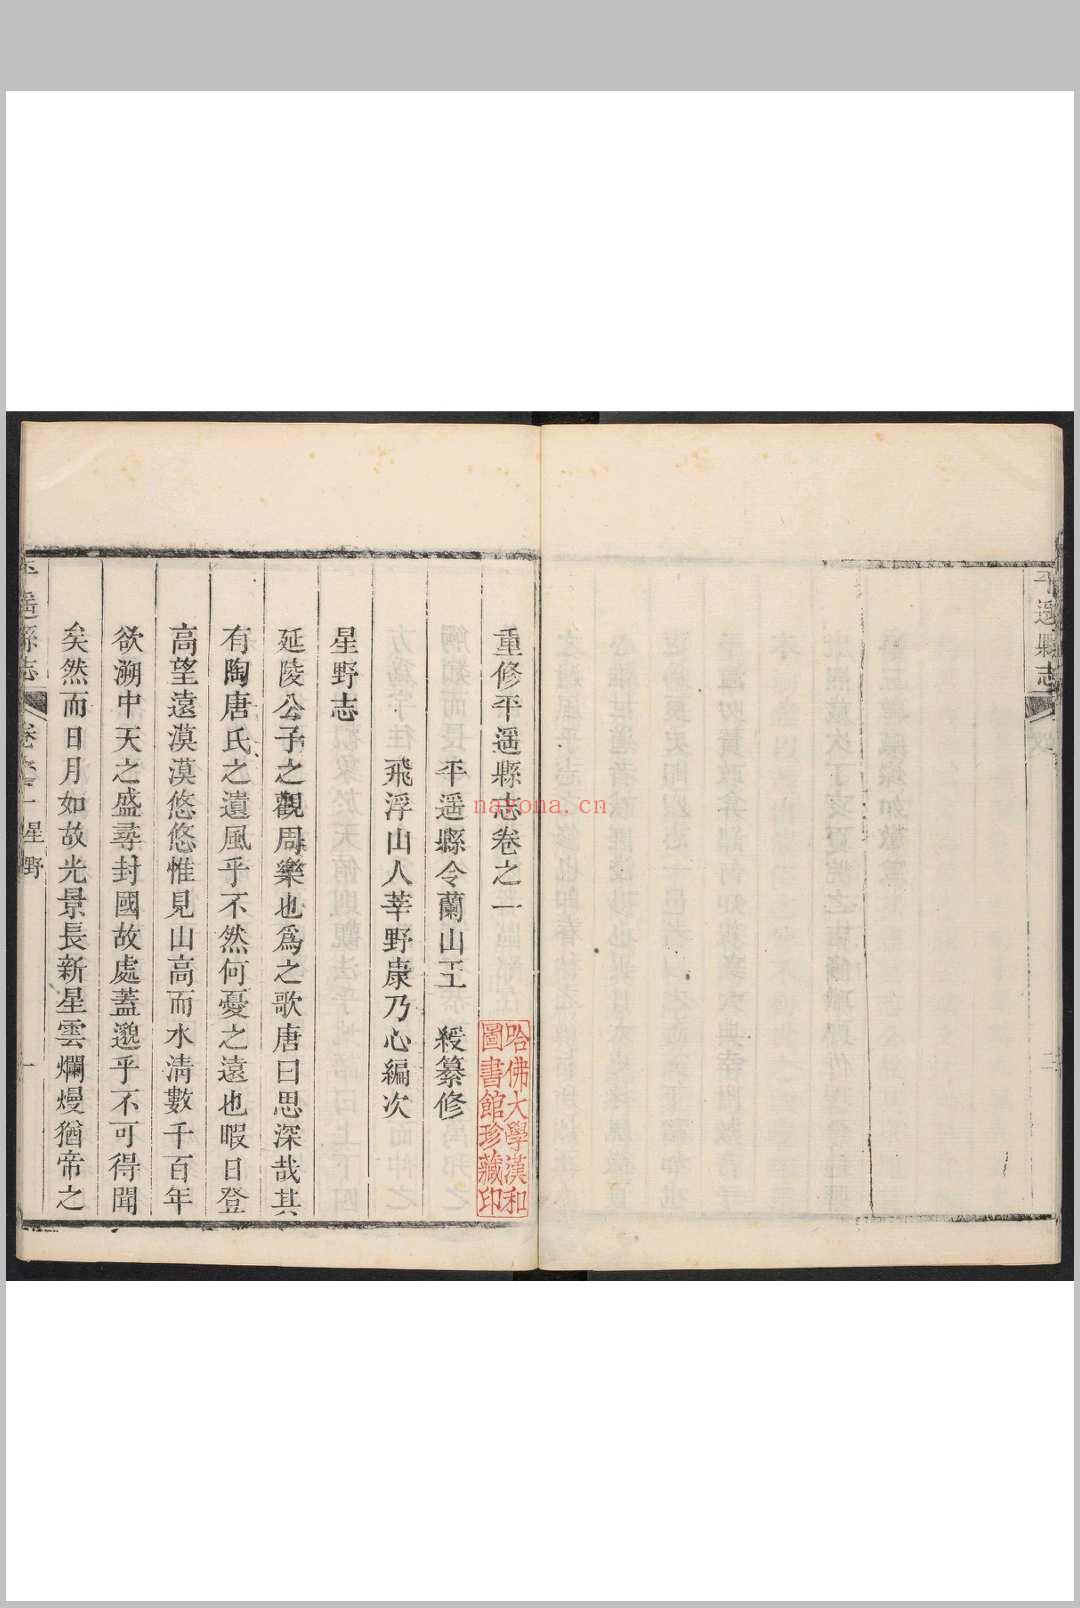 平遥縣志
二
重修平遥縣志卷之一
平遥縣令蘭山王　綬纂修
飛浮山人莘野康乃心編次
星野志
延陵公子之觀周樂也爲之歌唐曰思深哉其
有陶唐氏之遺風乎不然何憂之遠也暇日登
高望遠漠漠悠悠惟見山高而水清數千百年
欲溯中天之盛尋封國故處蓋邈乎不可得聞
矣然而日月如故光景長新星雲爛熳猶帝之
平遥縣志
卷之一
星野
一
哈佛大學漢和
圖書館珍藏印
nayona.cn